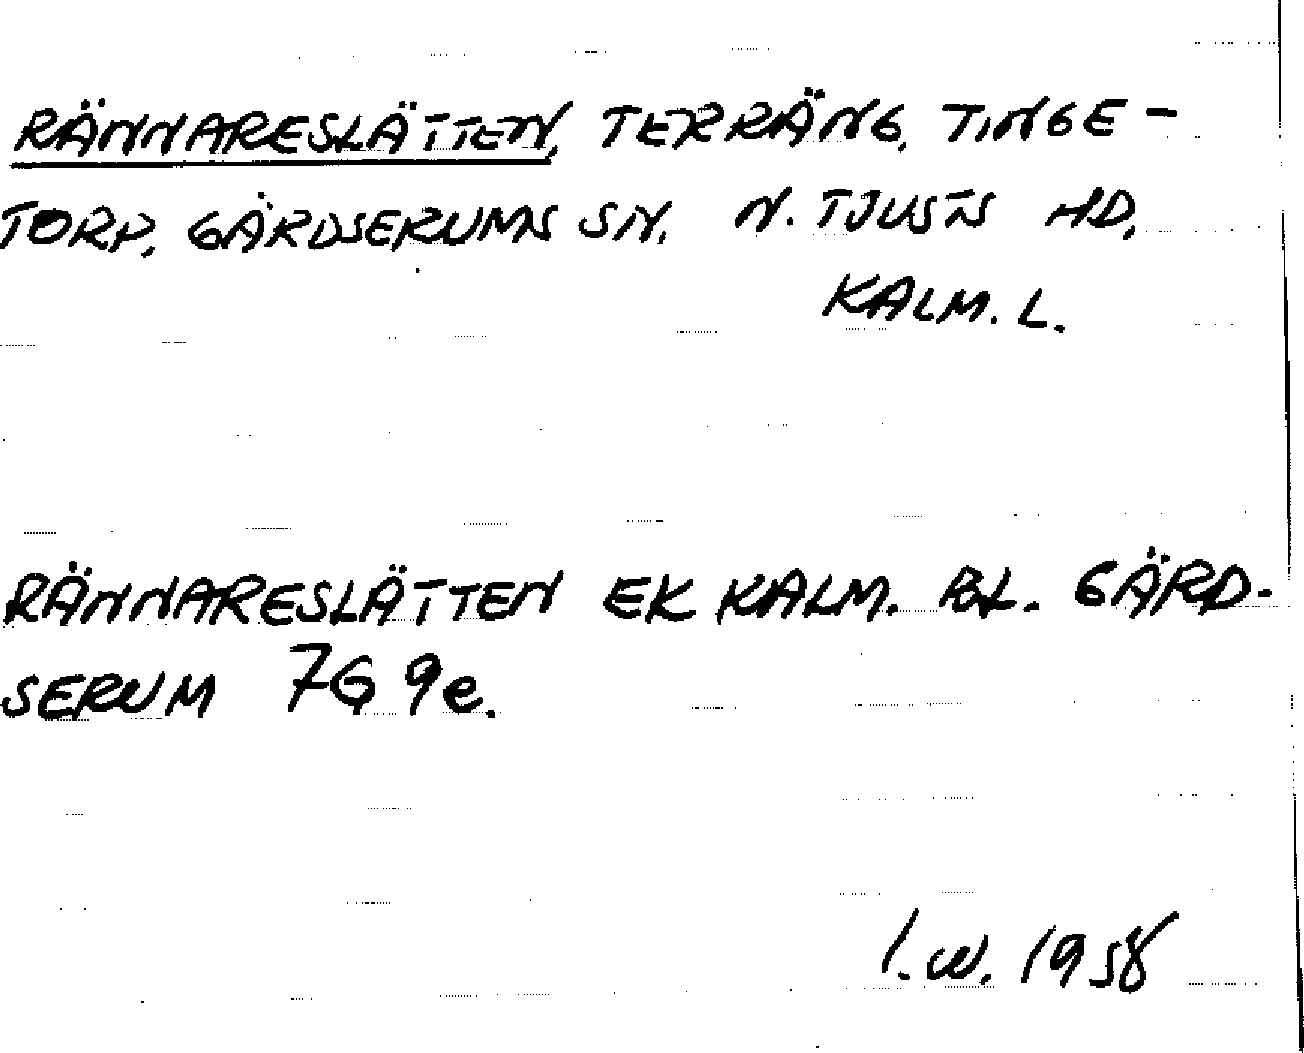 RÄNNARESLÄTTEN, TERRÄNG, TINGE-
TORP, GÄRDSERUMS SN, N. TJUSTS HD,
KALM. L.
RÄNNARESLÄTTEN EK KALM. BL. GÄRD-
SERUM 7G 9e.
I.W. 1958